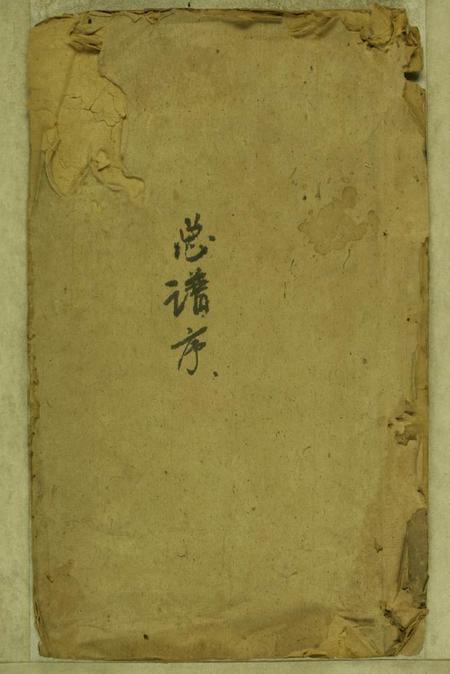 总谱序、